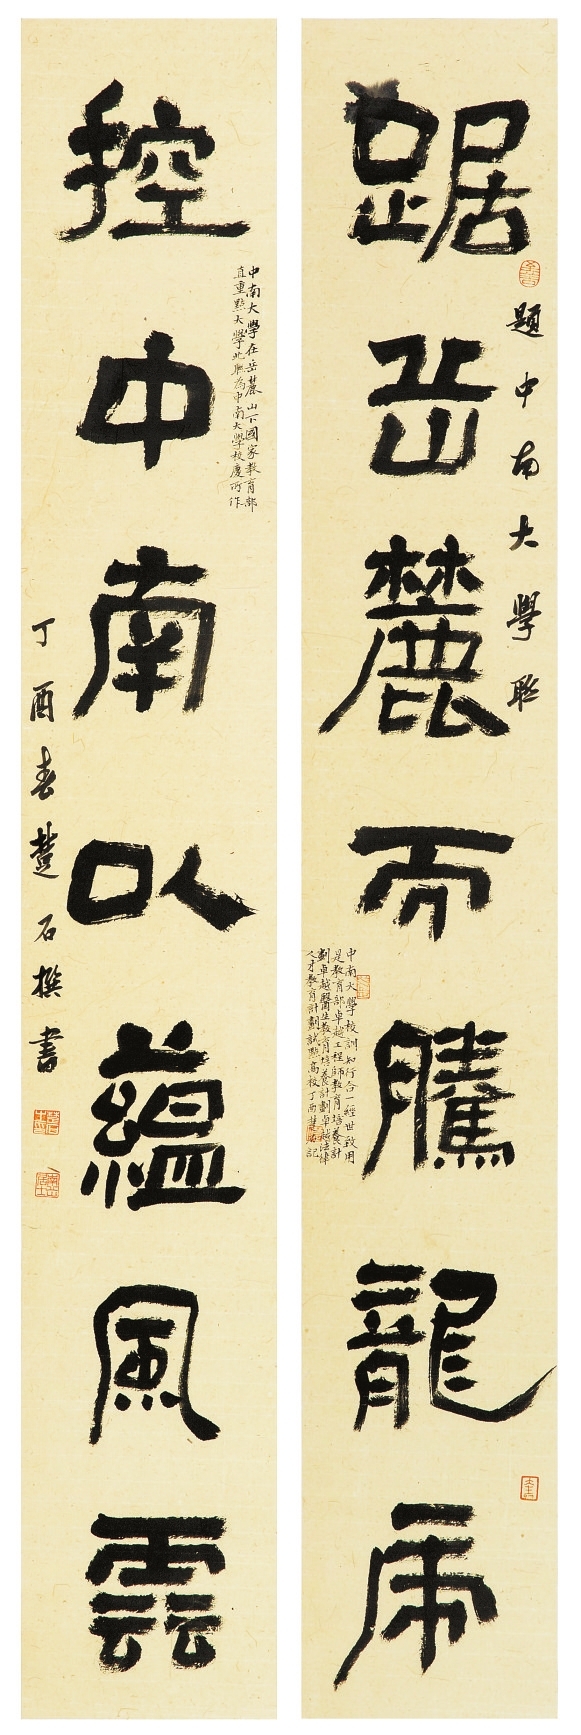 踞岳麓而騰龍虎
題中南大學聯
中南大學校訓知行合一經世致用
是教育部卓越工程師教育培養計
劃卓越醫生教育培養計劃卓越法律
人才教育計劃試點高校丁酉楚石記
控中南以蘊風雲
中南大學在岳麓山下國家教育部
直重點大學此聯為中南大學校慶所作
丁酉春楚石撰書